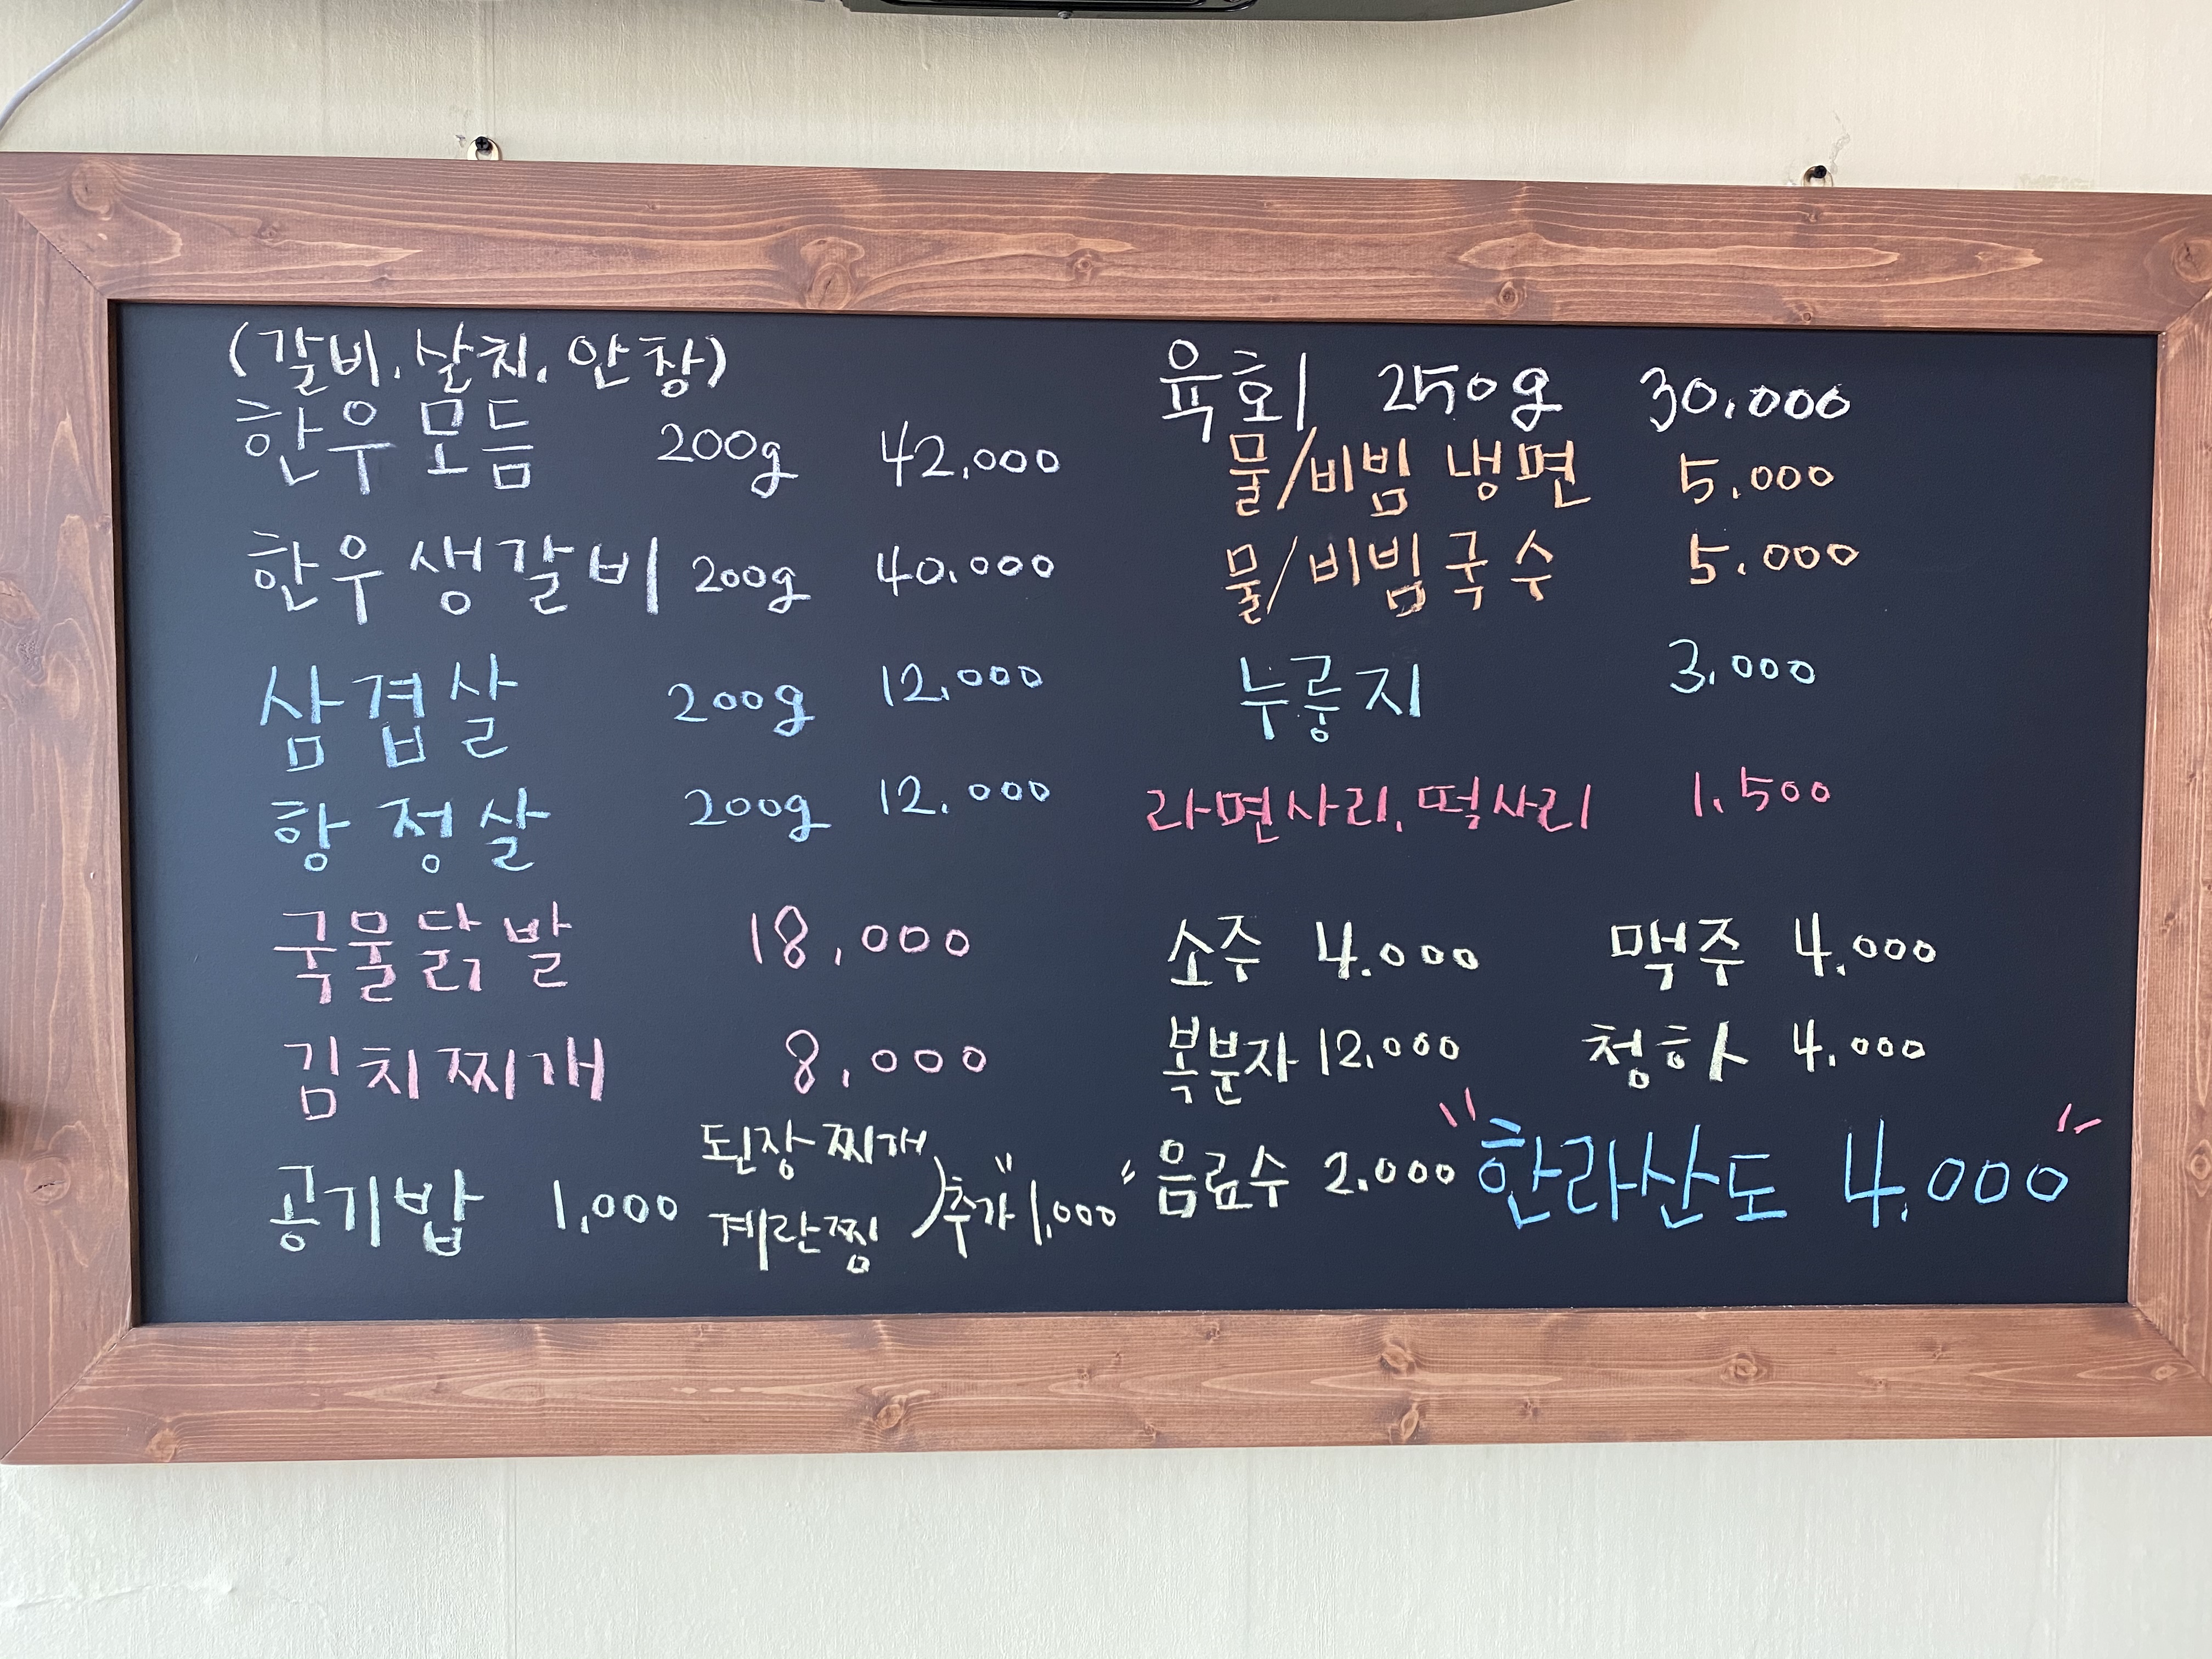 (갈비.살치.안창)
한우모듬 200g 42,000
한우생갈비 200g 40.000
삼겹살 200g 12.000
항정살 200g 12.000
국물닭발 18,000
김치찌개 8,000
공기밥 1,000
된장찌개
계란찜
) 추가 1,000
육회 250g 30.000
물/비빔 냉면 5.000
물/비빔국수 5.000
누룽지 3.000
라면사리. 떡사리 1.500
소주 4.000 맥주 4.000
복분자 12.000 청하 4.000
음료수 2.000 "한라산도 4.000"